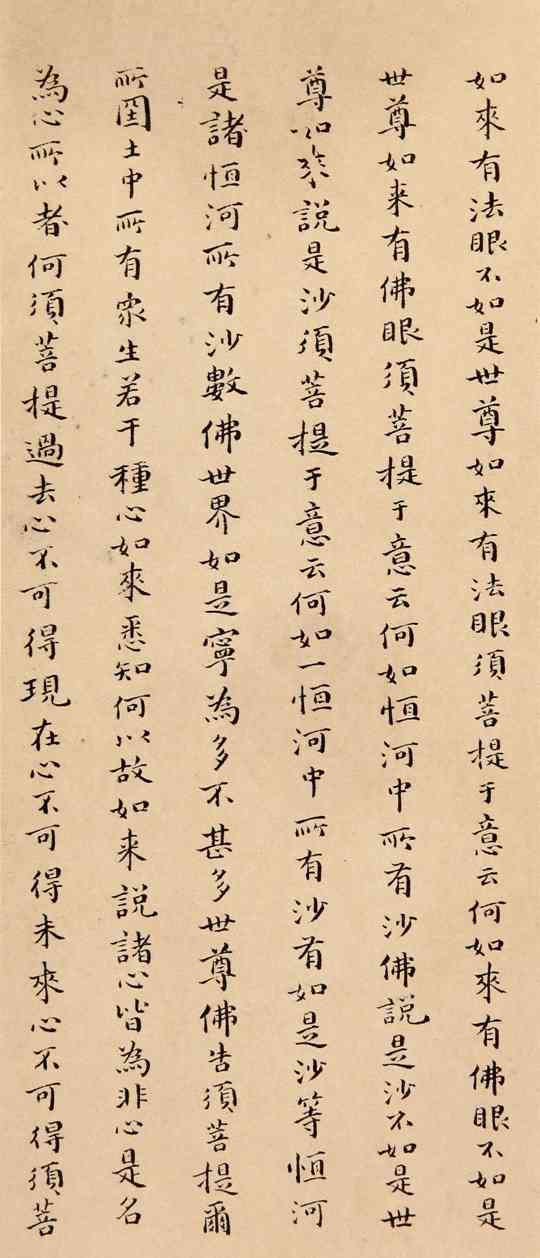 如來有法眼不如是世尊如來有法眼須菩提于意云何如來有佛眼不如是
世尊如来有佛眼須菩提于意云何如恒河中所有沙佛說是沙不如是世
尊如來說是沙須菩提于意云何如一恒河中所有沙有如是沙等恒河
是諸恒河所有沙數佛世界如是寧為多不甚多世尊佛告須菩提爾
所国土中所有眾生若干種心如來悉知何以故如来說諸心皆為非心是名
為心所以者何須菩提過去心不可得現在心不可得未來心不可得須菩